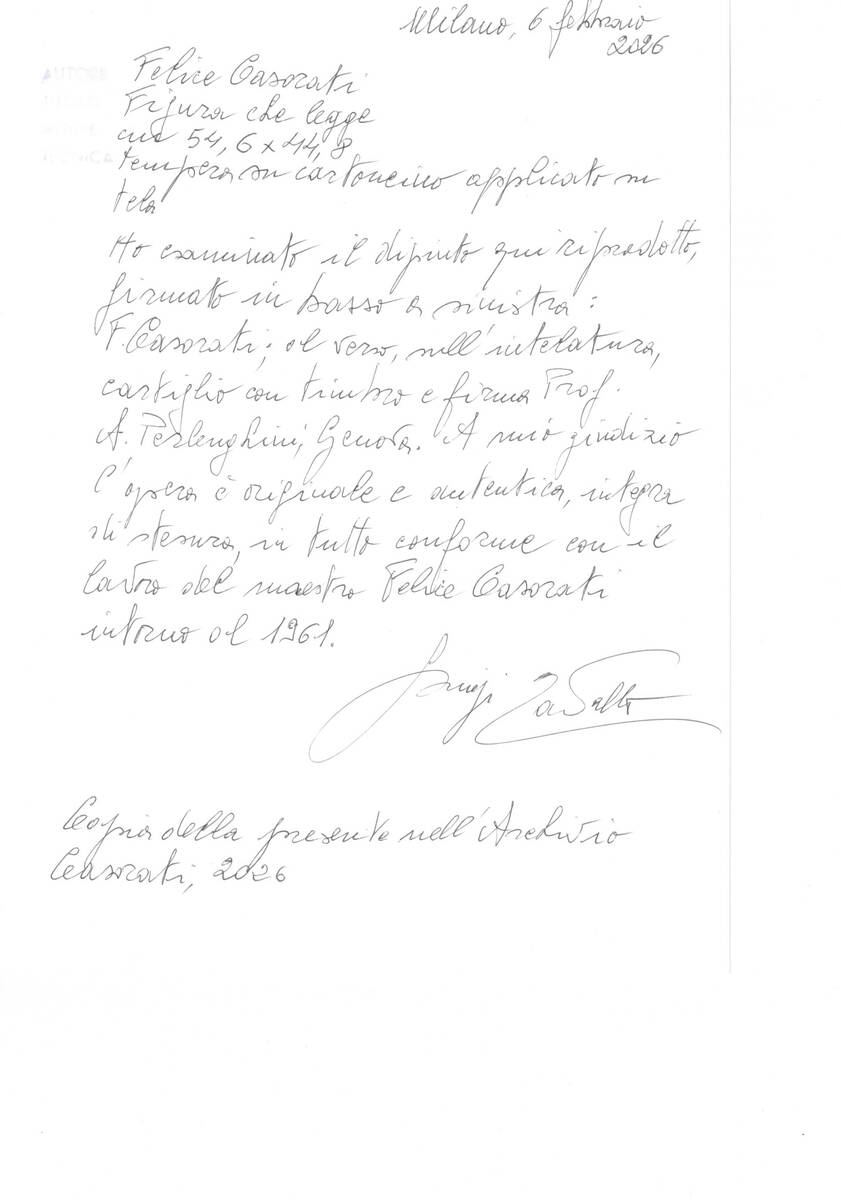 Milano, 6 febbraio
2026
AUTORE
TECNICA
Felice Casorati
Figura che legge
cm 54,6 x 44,8
tempera su cartoncino applicato su
tela
Ho esaminato il dipinto qui riprodotto,
firmato in basso a sinistra:
F. Casorati; al verso, sull'intelatura,
cartiglio con timbro e firma Prof.
A. Perlenghini, Genova. A mio giudizio
l'opera è originale e autentica, integra
di stesura, in tutto conforme con il
lavoro del maestro Felice Casorati
intorno al 1961.
Luigi Cavallo
Copia della presente nell'Archivio
Casorati, 2026